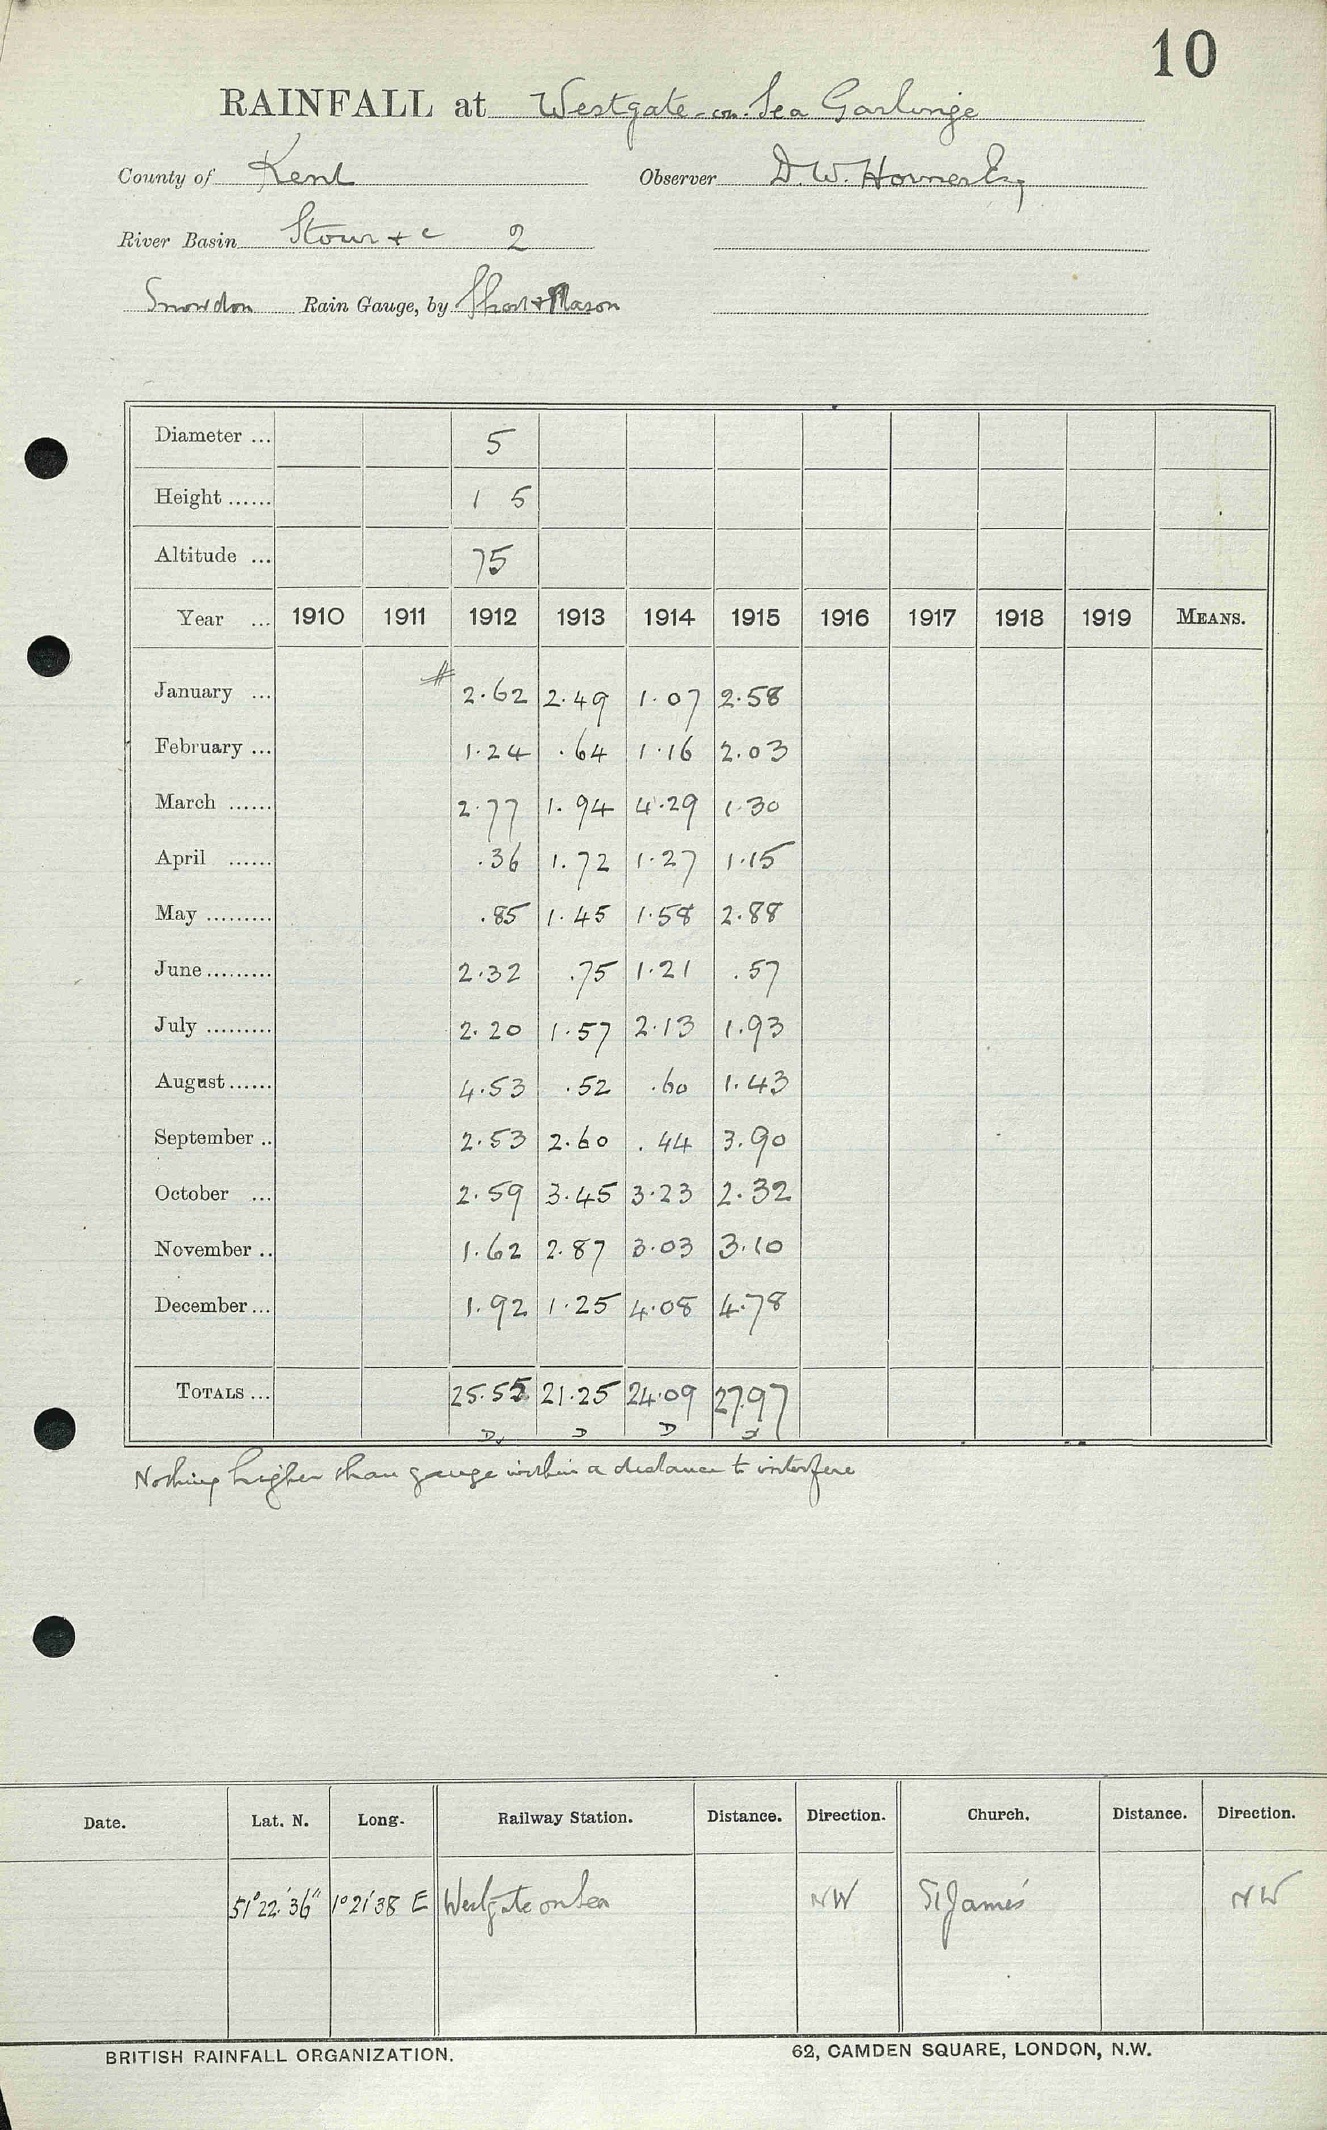 10
RAINFALL at Westgate-on-Sea Garlinge
County of Kent Observer D. W. Horner Esq
River Basin Stour & c 2
Snowdon Rain Gauge, by Short & Mason
Diameter ... 5
Height ...... 1 5
Altitude ... 75
Year ... 1910 1911 1912 1913 1914 1915 1916 1917 1918 1919 MEANS.
January ... # 2.62 2.49 1.07 2.58
February ... 1.24 .64 1.16 2.03
March ...... 2.77 1.94 4.29 1.30
April ...... .36 1.72 1.27 1.15
May ......... .85 1.45 1.58 2.88
June ......... 2.32 .75 1.21 .57
July ......... 2.20 1.57 2.13 1.93
August ...... 4.53 .52 .60 1.43
September .. 2.53 2.60 .44 3.90
October ... 2.59 3.45 3.23 2.32
November .. 1.62 2.87 3.03 3.10
December ... 1.92 1.25 4.08 4.78
TOTALS ... 25.55 21.25 24.09 27.97
D D D
Nothing higher than gauge within a distance to interfere
Date. Lat. N. Long. Railway Station. Distance. Direction. Church. Distance. Direction.
51°22'36" 1°21'38 E Westgate on Sea NW St James' NW
BRITISH RAINFALL ORGANIZATION. 62, CAMDEN SQUARE, LONDON, N.W.